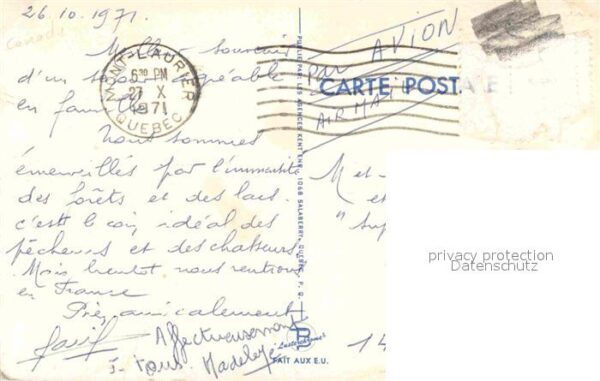 26.10.1971.
Canada
Meilleur souvenir
d'un séjour agréable
en famille
Nous sommes
émerveillés par l'immensité
des forêts et des lacs.
c'est le coin idéal des
pêcheurs et des chasseurs
Mais bientôt nous rentrons
en France
Très amicalement
Affectueusement
à tous. Madeleine
MONT-LAURIER
6 30 PM
27 X
1971
QUEBEC
PUBLIE PAR LES AGENCES KENT ENR. 1068 SALABERRY, QUEBEC, P. Q.
par AVION
CARTE POSTALE
AIR MAIL
M et
et
"
privacy protection
Datenschutz
14
FAIT AUX E.U.